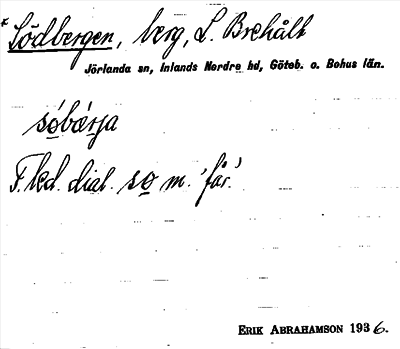 * Södbergen, berg, L. Brehålt
Jörlanda sn, Inlands Nordre hd, Göteb. o. Bohus län.
söbærja
F. led. dial. so m. 'får'.
ERIK ABRAHAMSON 1936.